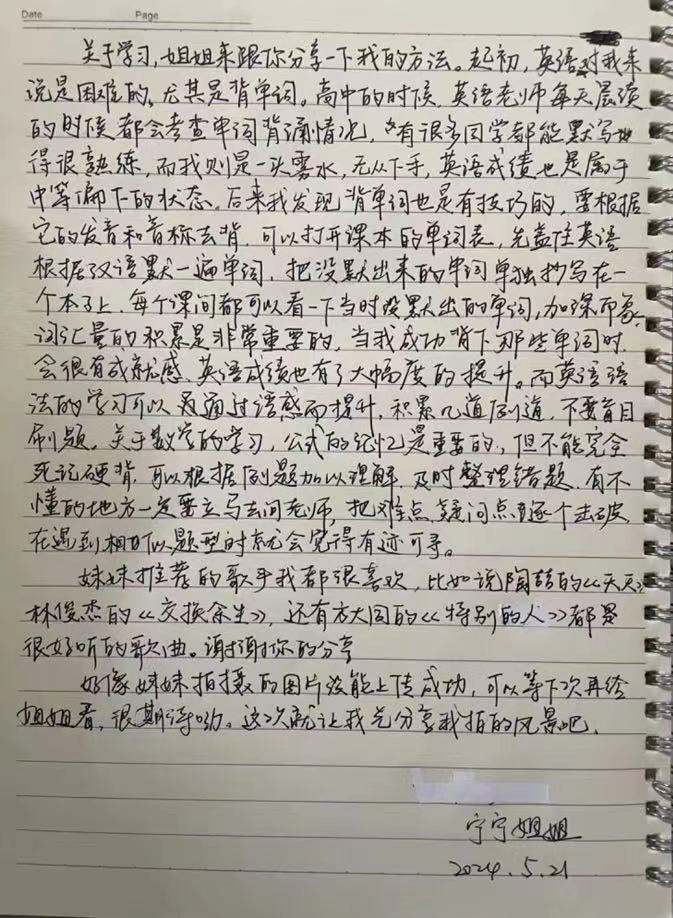 Date Page
关于学习,姐姐来跟你分享一下我的方法。起初,英语对我来
说是困难的,尤其是背单词。高中的时候,英语老师每天晨读
的时候都会考查单词背诵情况,有很多同学都能默写地
得很熟练,而我则是一头雾水,无从下手,英语成绩也是属于
中等偏下的状态。后来我发现背单词也是有技巧的,要根据
它的发音和音标去背,可以打开课本的单词表,先盖住英语
根据汉语默一遍单词,把没默出来的单词单独抄写在一
个本子上,每个课间都可以看一下当时没默出的单词,加深印象,
词汇量的积累是非常重要的,当我成功背下那些单词时
会很有成就感,英语成绩也有了大幅度的提升。而英语语
法的学习可以通过语感而提升,积累几道例道,不要盲目
刷题。关于数学的学习,公式的记忆是重要的,但不能完全
死记硬背,可以根据例题加以理解,及时整理错题,有不
懂的地方一定要立马去问老师,把难点疑问点逐个击破
在遇到相似题型时就会觉得有迹可寻。
妹妹推荐的歌手我都很喜欢,比如说陶喆的《天天》
林俊杰的《交换余生》,还有方大同的《特别的人》都是
很好听的歌曲。谢谢你的分享
好像妹妹拍摄的图片没能上传成功,可以等下次再给
姐姐看,很期待哟。这次就让我先分享我拍的风景吧.
宁宁姐姐
2024.5.21